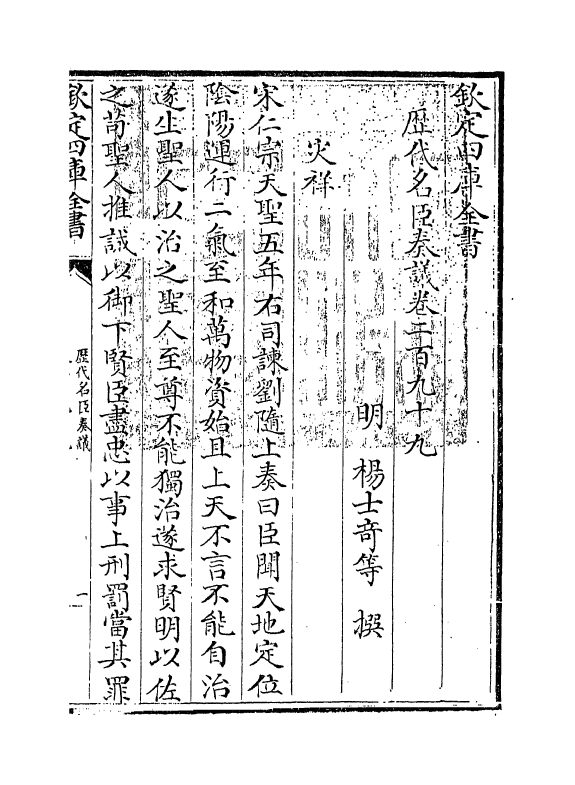 欽定四庫全書
歴代名臣奏議卷二百九十九
明 楊士竒等 撰
災祥
宋仁宗天聖五年右司諫劉隨上奏曰臣聞天地定位
陰陽運行二氣至和萬物資始且上天不言不能自治
遂生聖人以治之聖人至尊不能獨治遂求賢明以佐
之茍聖人推誠以御下賢臣盡忠以事上刑罰當其罪
欽定四庫全書
歴代名臣奏議
一